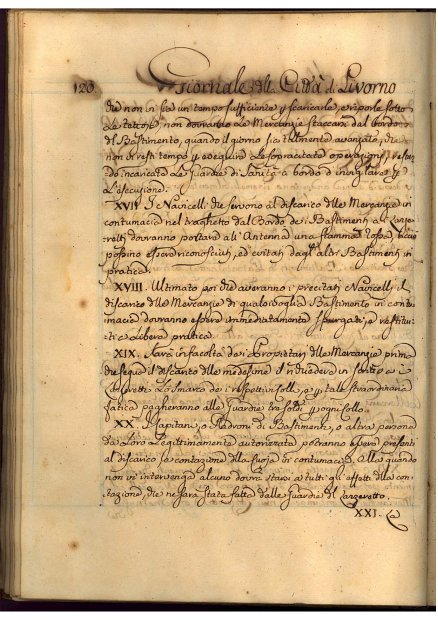 120. Giornale della Città di Livorno
che non vi sia un tempo sufficiente per scaricarle, e riporle sotto
Le tettoje, non dovranno Le Mercanzie staccarsi dal bordo
del Bastimento, quando il giorno sia talmente avanzato, che
non vi resti tempo per eseguire Le sopracitate operazioni,
do incaricate Le Guardie di Sanità a bordo d'invigilare per
L'esecuzione.
XVII. I Navicelli che servono al discarico delle Mercanzie in
contumacia nel tragitto dal Bordo dei Bastimenti ai Lazze
retti dovranno portare all'Antenna una fiamma Rossa,
possino essere riconosciuti, ed evitati dagli altri Bastimenti in
pratica.
XVIII. Ultimato poi che averanno i precitati Navicelli il
discarico delle Mercanzie di qualsivoglia Bastimento in contu
macia dovranno essere immediatamente spurgati, e restitui
ti a Libera pratica.
XIX. Sarà in facoltà dei Proprietarj delle Mercanzie prima
che segua il discarico delle medesime il richiedere in
Lazzeretti Lo smarco dei rispettivi colli, e per tale straordinaria
fatica pagheranno alle Guardie tre soldi per ogni collo.
XX. Capitani, o Padroni di Bastimenti, o altra persona
da Loro Legittimamente autorizzata potranno essere presenti
al discarico, e contazione della in contumacia. Alla quando
non v'intervenga alcuno dovrà starsi a tutti gli effetti alla con
tazione, che ne sarà stata fatta dalle Guardie di Lazzeretto.
XXI.